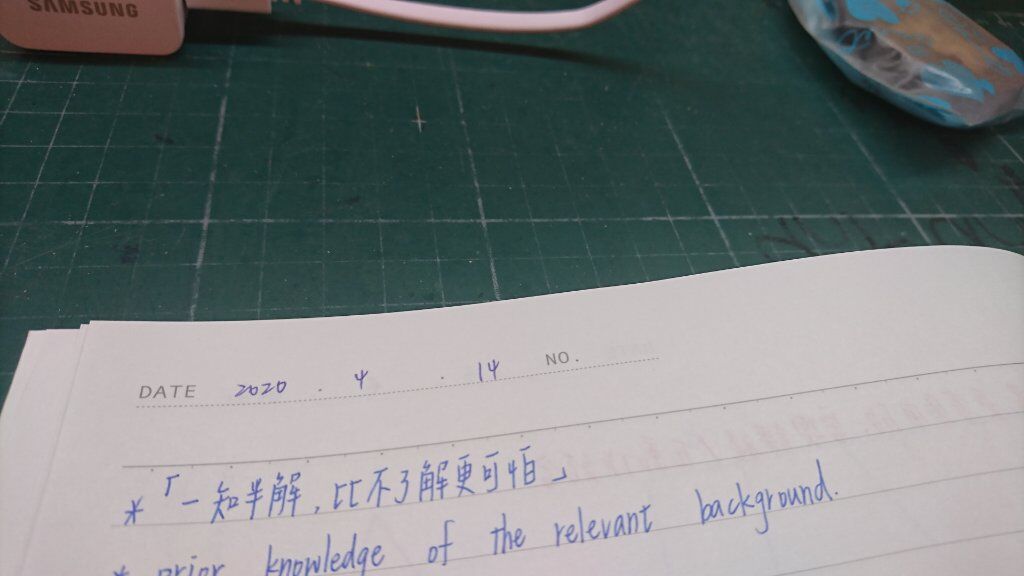 SAMSUNG
DATE 2020 . 4 . 14 NO.
*「一知半解，比不了解更可怕」
* prior knowledge of the relevant background.